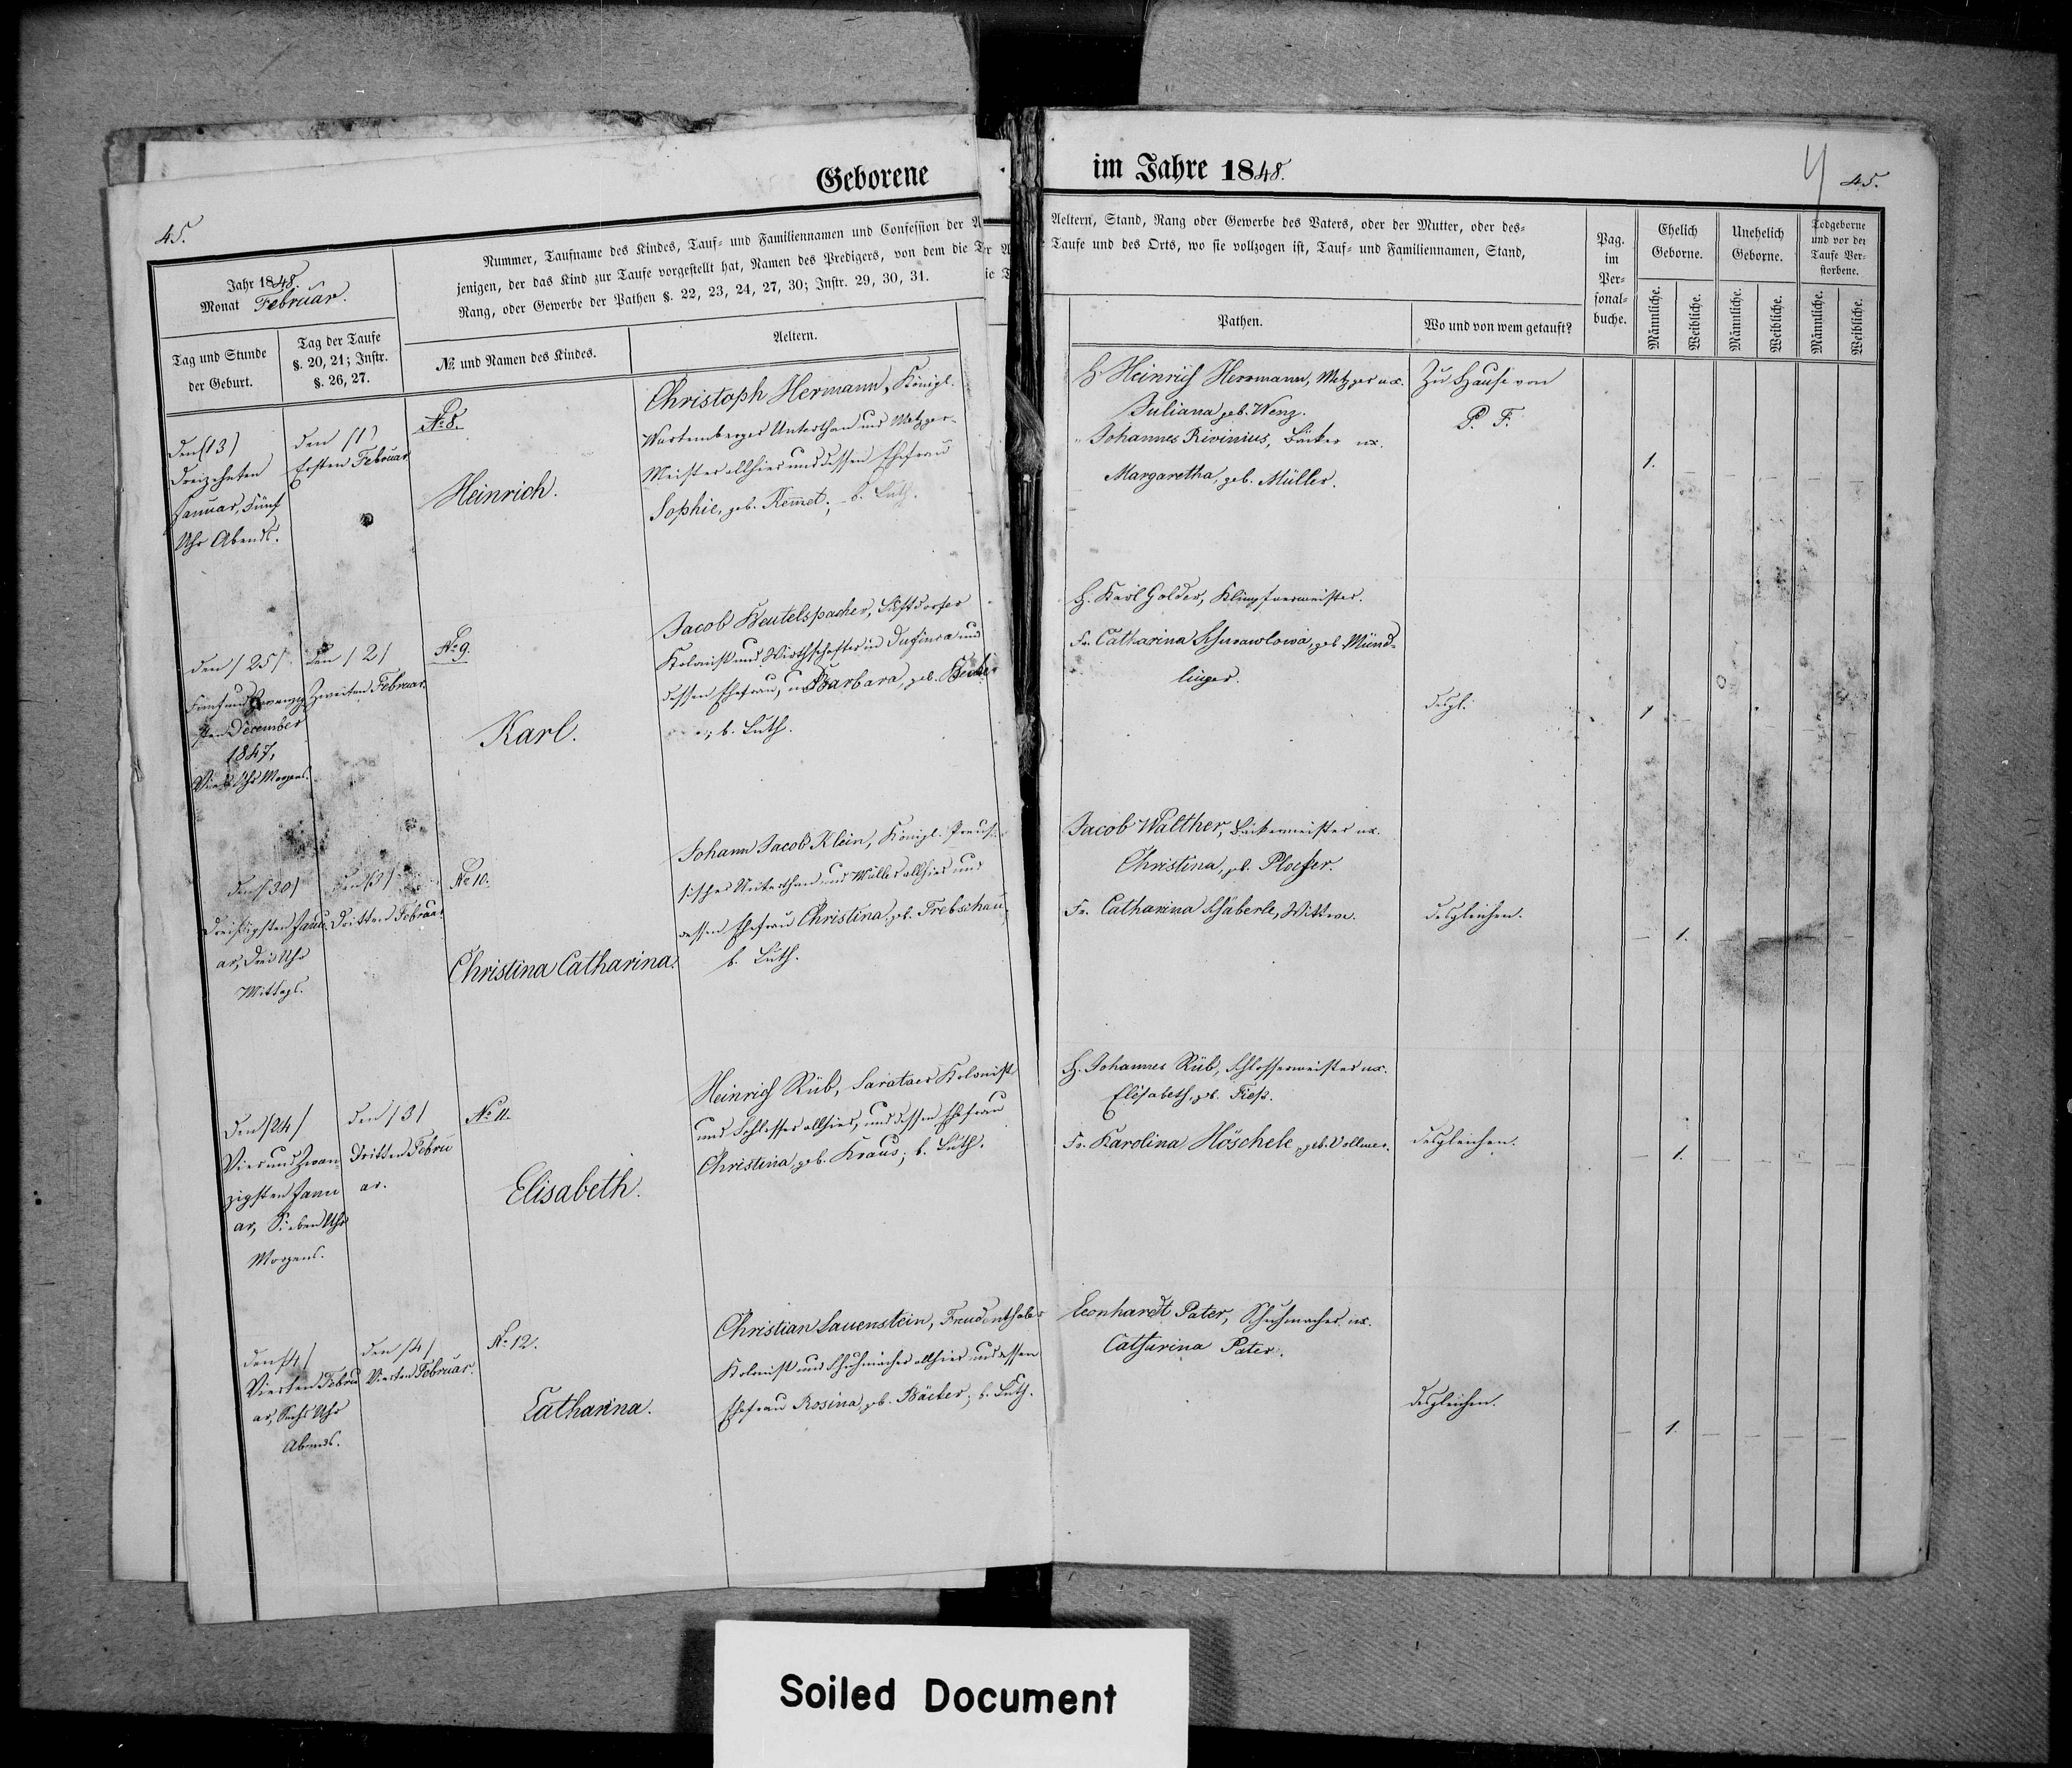 Geborene
im Jahre 1848.
45.
45.
Jahr 1848.
Monat Februar.
Nummer, Taufname des Kindes, Tauf- und Familiennamen und Confession der
jenigen, der das Kind zur Taufe vorgestellt hat, Namen des Predigers, von dem die
Rang, oder Gewerbe der Pathen §. 22, 23, 24, 27, 30; Instr. 29, 30, 31.
Aeltern, Stand, Rang oder Gewerbe des Vaters, oder der Mutter, oder des-
Taufe und des Orts, wo sie vollzogen ist, Tauf- und Familiennamen, Stand,
Pag. im Per- sonal- buche.
Ehelich Geborne.
Unehelich Geborne.
Todgeborne und vor der Taufe Ver- storbene.
Tag und Stunde
der Geburt.
Tag der Taufe
§. 20, 21; Instr.
§. 26, 27.
№ und Namen des Kindes.
Aeltern.
Pathen.
Wo und von wem getauft?
Männliche.
Weibliche.
Männliche.
Weibliche.
Männliche.
Weibliche.
den (13)
dreizehnten
Januar, Fünf
Uhr Abends.
den (1)
Ersten Februar
№ 8.
Heinrich.
Christoph Hermann, Königl.
Würtemberger Unterthan und Metzger-
Meister allhier und dessen Ehefrau
Sophie, geb. Kemet; b. Luth.
H. Heinrich Herrmann, Metzger ux.
Juliana, geb. Wenz.
" Johannes Rivinius, Bäcker ux.
Margaretha, geb. Müller.
Zu Hause von
P. F.
1.
den /25/
Fünfundzwanzig
sten December
1847,
Vier Uhr Morgens.
den /2/
Zweiten Februar.
№ 9.
Karl.
Jacob Beutelspacher, Lustdorfer
Kolonist und Wirthschafter in Dufinca und
dessen Ehefrau, Barbara, geb.
b. Luth.
H. Karl Golder, Klempnermeister.
Fr. Catharina Schurawlowa, geb. Münd-
linger.
desgl.
1
den /30/
Dreißigsten Janu-
ar, Drei Uhr
Mittags.
den /3/
Dritten Februar.
№ 10.
Christina Catharina.
Johann Jacob Klein, Königl. Preus-
sischer Unterthan und Müller allhier und
dessen Ehefrau Christina, geb. Trebschau,
b. Luth.
Jacob Walther, Bäckermeister ux.
Christina, geb. Ploeßer.
Fr. Catharina Schäberle, Wittwe.
desgleichen.
1.
den /24/
Vierundzwan-
zigsten Janu
ar, Sieben Uhr
Morgens.
den /3/
Dritten Febru
ar.
№ 11.
Elisabeth.
Heinrich Rüb, Sarataer Kolonist
und Schlosser allhier, und dessen Ehefrau
Christina, geb. Kraus; b. Luth.
H. Johannes Rüb, Schlossermeister ux.
Elisabeth, geb. Fieß.
Fr. Karolina Höschele, geb. Vollmer.
desgleichen.
1.
den /4/
Vierten Febru
ar, Sechs Uhr
Abends.
den /4/
Vierten Februar.
№ 12.
Catharina.
Christian Lauenstein, Freudenthaler
Kolonist und Schuhmacher allhier und dessen
Ehefrau Rosina, geb. Bäcker; b. Luth.
Leonhardt Pater, Schuhmacher ux.
Catharina Pater.
desgleichen.
1.
Soiled Document